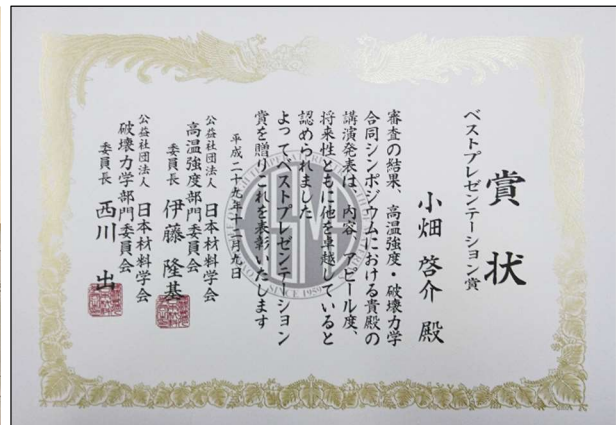 賞状
ベストプレゼンテーション賞
小畑 啓介 殿
審査の結果、高温強度・破壊力学
合同シンポジウムにおける貴殿の
講演発表は、内容、アピール度、
将来性ともに他を卓越していると
認められました
よってベストプレゼンテーション
賞を贈りこれを表彰いたします
平成二十九年十二月九日
公益社団法人 日本材料学会
高温強度部門委員会
委員長 伊藤 隆基
公益社団法人 日本材料学会
破壊力学部門委員会
委員長 西川 出
SINCE 1959